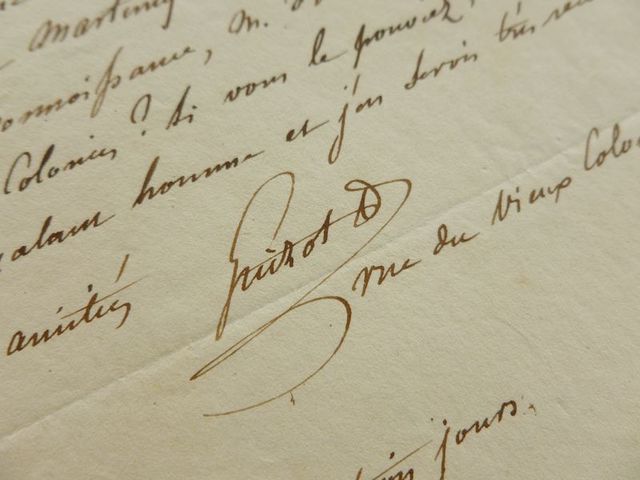 Martini
connoissance, M.
Colonies? si vous le pouviez
galant homme et j'en serois très
amitiés Guizot D
rue du Vieux Colo
jours.